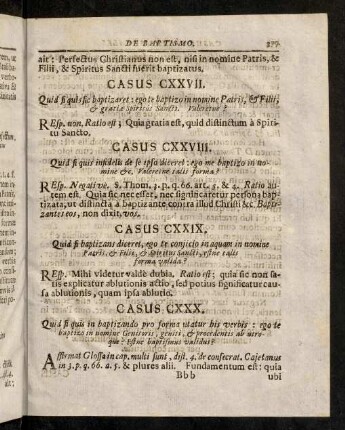 DE BAPTISMO.
ait: Perfectus Christianus non est, nisi in nomine Patris, &
Filii, & Spiritus Sancti fuerit baptizatus.
CASUS CXXVII.
Quid si quis sic baptizaret: ego te baptizo in nomine Patris, & Filii,
& gratiæ Spiritus Sancti. Valeretne?
REsp. non. Ratio est; Quia gratia est, quid distinctum à Spiri-
tu Sancto.
CASUS CXXVIII.
Quid si quis infidelis de se ipso diceret: ego me baptizo in no-
mine &c. Valeretne talis forma?
REsp. Negativè. S. Thom. 3. p. q. 66. art. 5. & 4. Ratio au-
tem est. Quia sic nec esset, nec significaretur persona bap-
tizata, ut distincta à baptizante contra illud Christi &c. Bapti-
zantes eos, non dixit, vos.
CASUS CXXIX.
Quid si baptizans diceret, ego te conjicio in aquam in nomine
Patris, & Filii, & Spiritus Sancti, estne talis
forma valida?
REsp. Mihi videtur valde dubia. Ratio est; quia sic non sa-
tis explicatur ablutionis actio, sed potius significatur cau-
sa ablutionis, quam ipsa ablutio.
CASUS CXXX.
Quid si quis in baptizando pro forma utatur his verbis: ego te
baptizo in nomine Genitoris, geniti, & procedentis ab utro-
que? Estne baptismus validus?
AFfirmat Glossa in cap. multi sunt, dist. 4. de consecrat. Cajetanus
in 3. p. q. 66. a. 5. & plures alii. Fundamentum est: quia
Bbb ubi